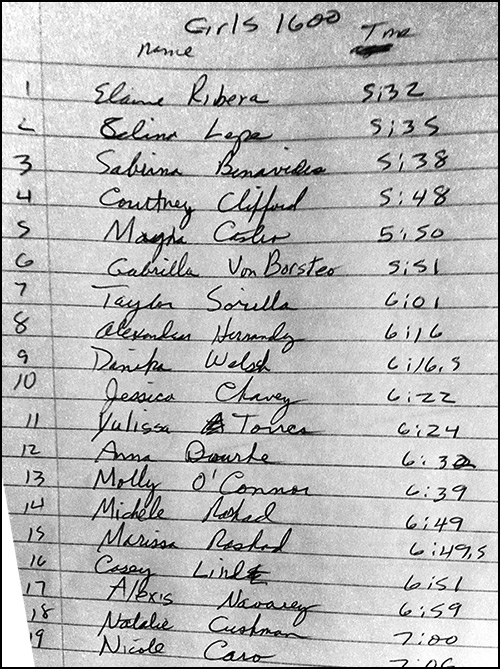 Girls 1600
Name Time
1 Elaine Ribera 5:32
2 Selina Lepe 5:35
3 Sabrina Benavides 5:38
4 Courtney Clifford 5:48
5 Mayra Castro 5:50
6 Gabrilla Von Borstel 5:51
7 Taylor Sorilla 6:01
8 Alexandra Hernandez 6:16
9 Danika Welsh 6:16.5
10 Jessica Chavez 6:22
11 Yulissa Torres 6:24
12 Anna Rourke 6:32
13 Molly O'Connor 6:39
14 Michele Rashad 6:49
15 Marissa Rashad 6:49.5
16 Casey Lind 6:51
17 Alexis 6:59
18 Natalie Cushman 7:00
19 Nicole Caro 7:06